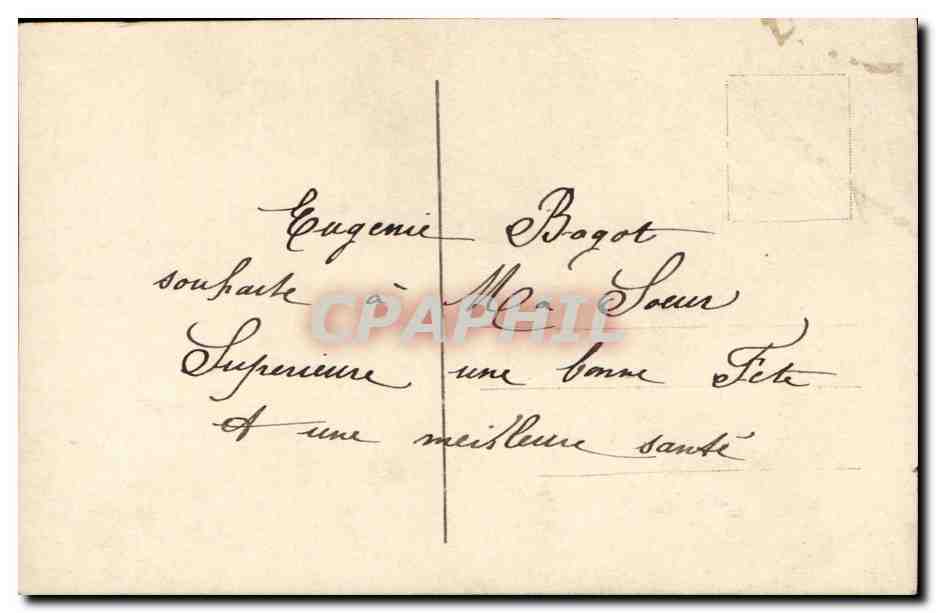 Eugenie Bagot
souhaite à Ma Soeur
CPAPHIL
Superieure une bonne Fete
Et une meilleure santé